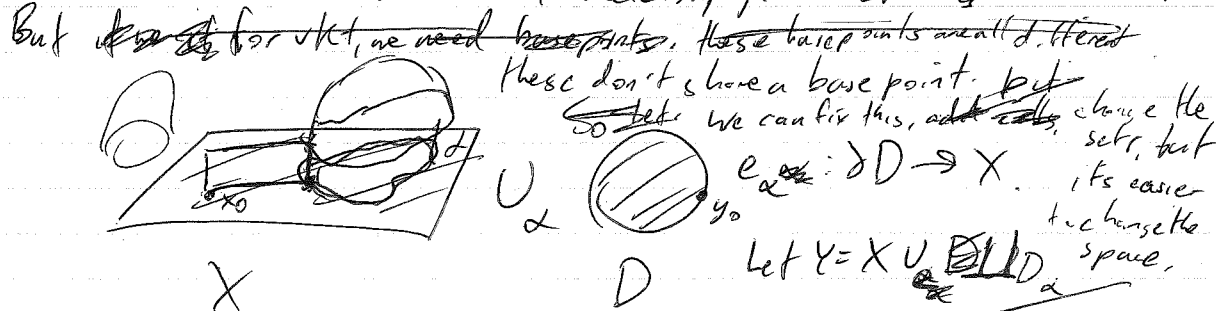 But for vKt, we need basepoints, these basepoints are all different
these don't share a base point. but
So we can fix this, change the
sets, but
its easier
to change the
space.
x₀
α
∪
α
y₀
e_α : ∂D → X
Let Y = X ∪ ⨆ D_α
X
D